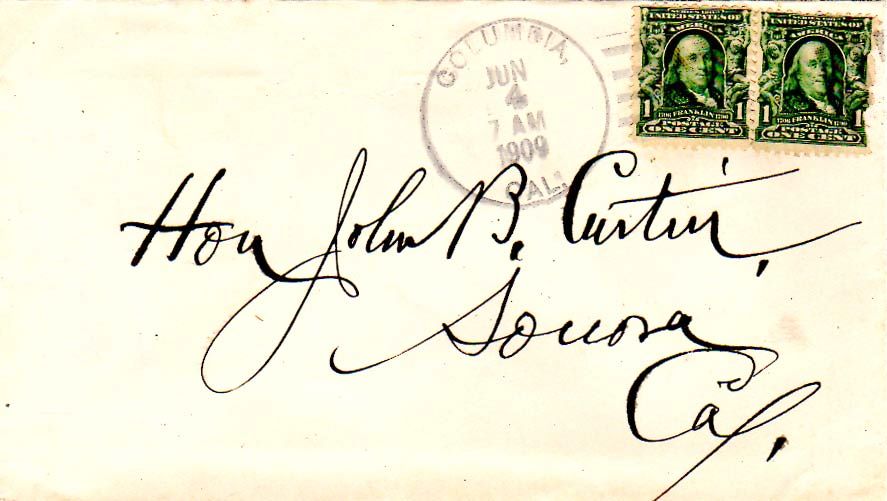 COLUMBIA,
JUN
4
7 AM
1909
CAL.
SERIES 1902
UNITED STATES OF
AMERICA
1 FRANKLIN 1
1706 1790
POSTAGE
ONE CENT
SERIES 1902
UNITED STATES OF
AMERICA
1 FRANKLIN 1
1706 1790
POSTAGE
ONE CENT
Hon John B. Curtin,
Sonora
Cal.